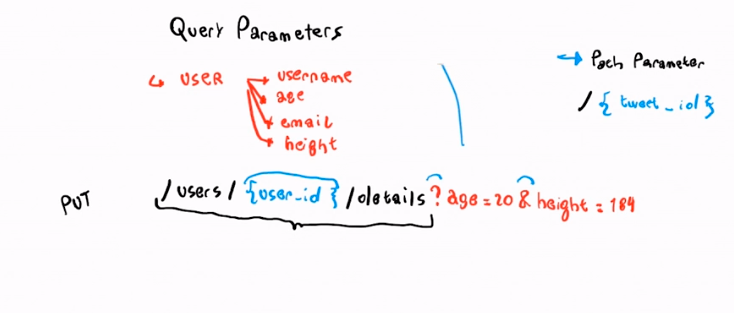 Query Parameters
↳ USER → username
→ age
→ email
→ height
→ Path Parameter
/ { tweet_id }
PUT /users/ {user_id} /details ? age = 20 & height = 184